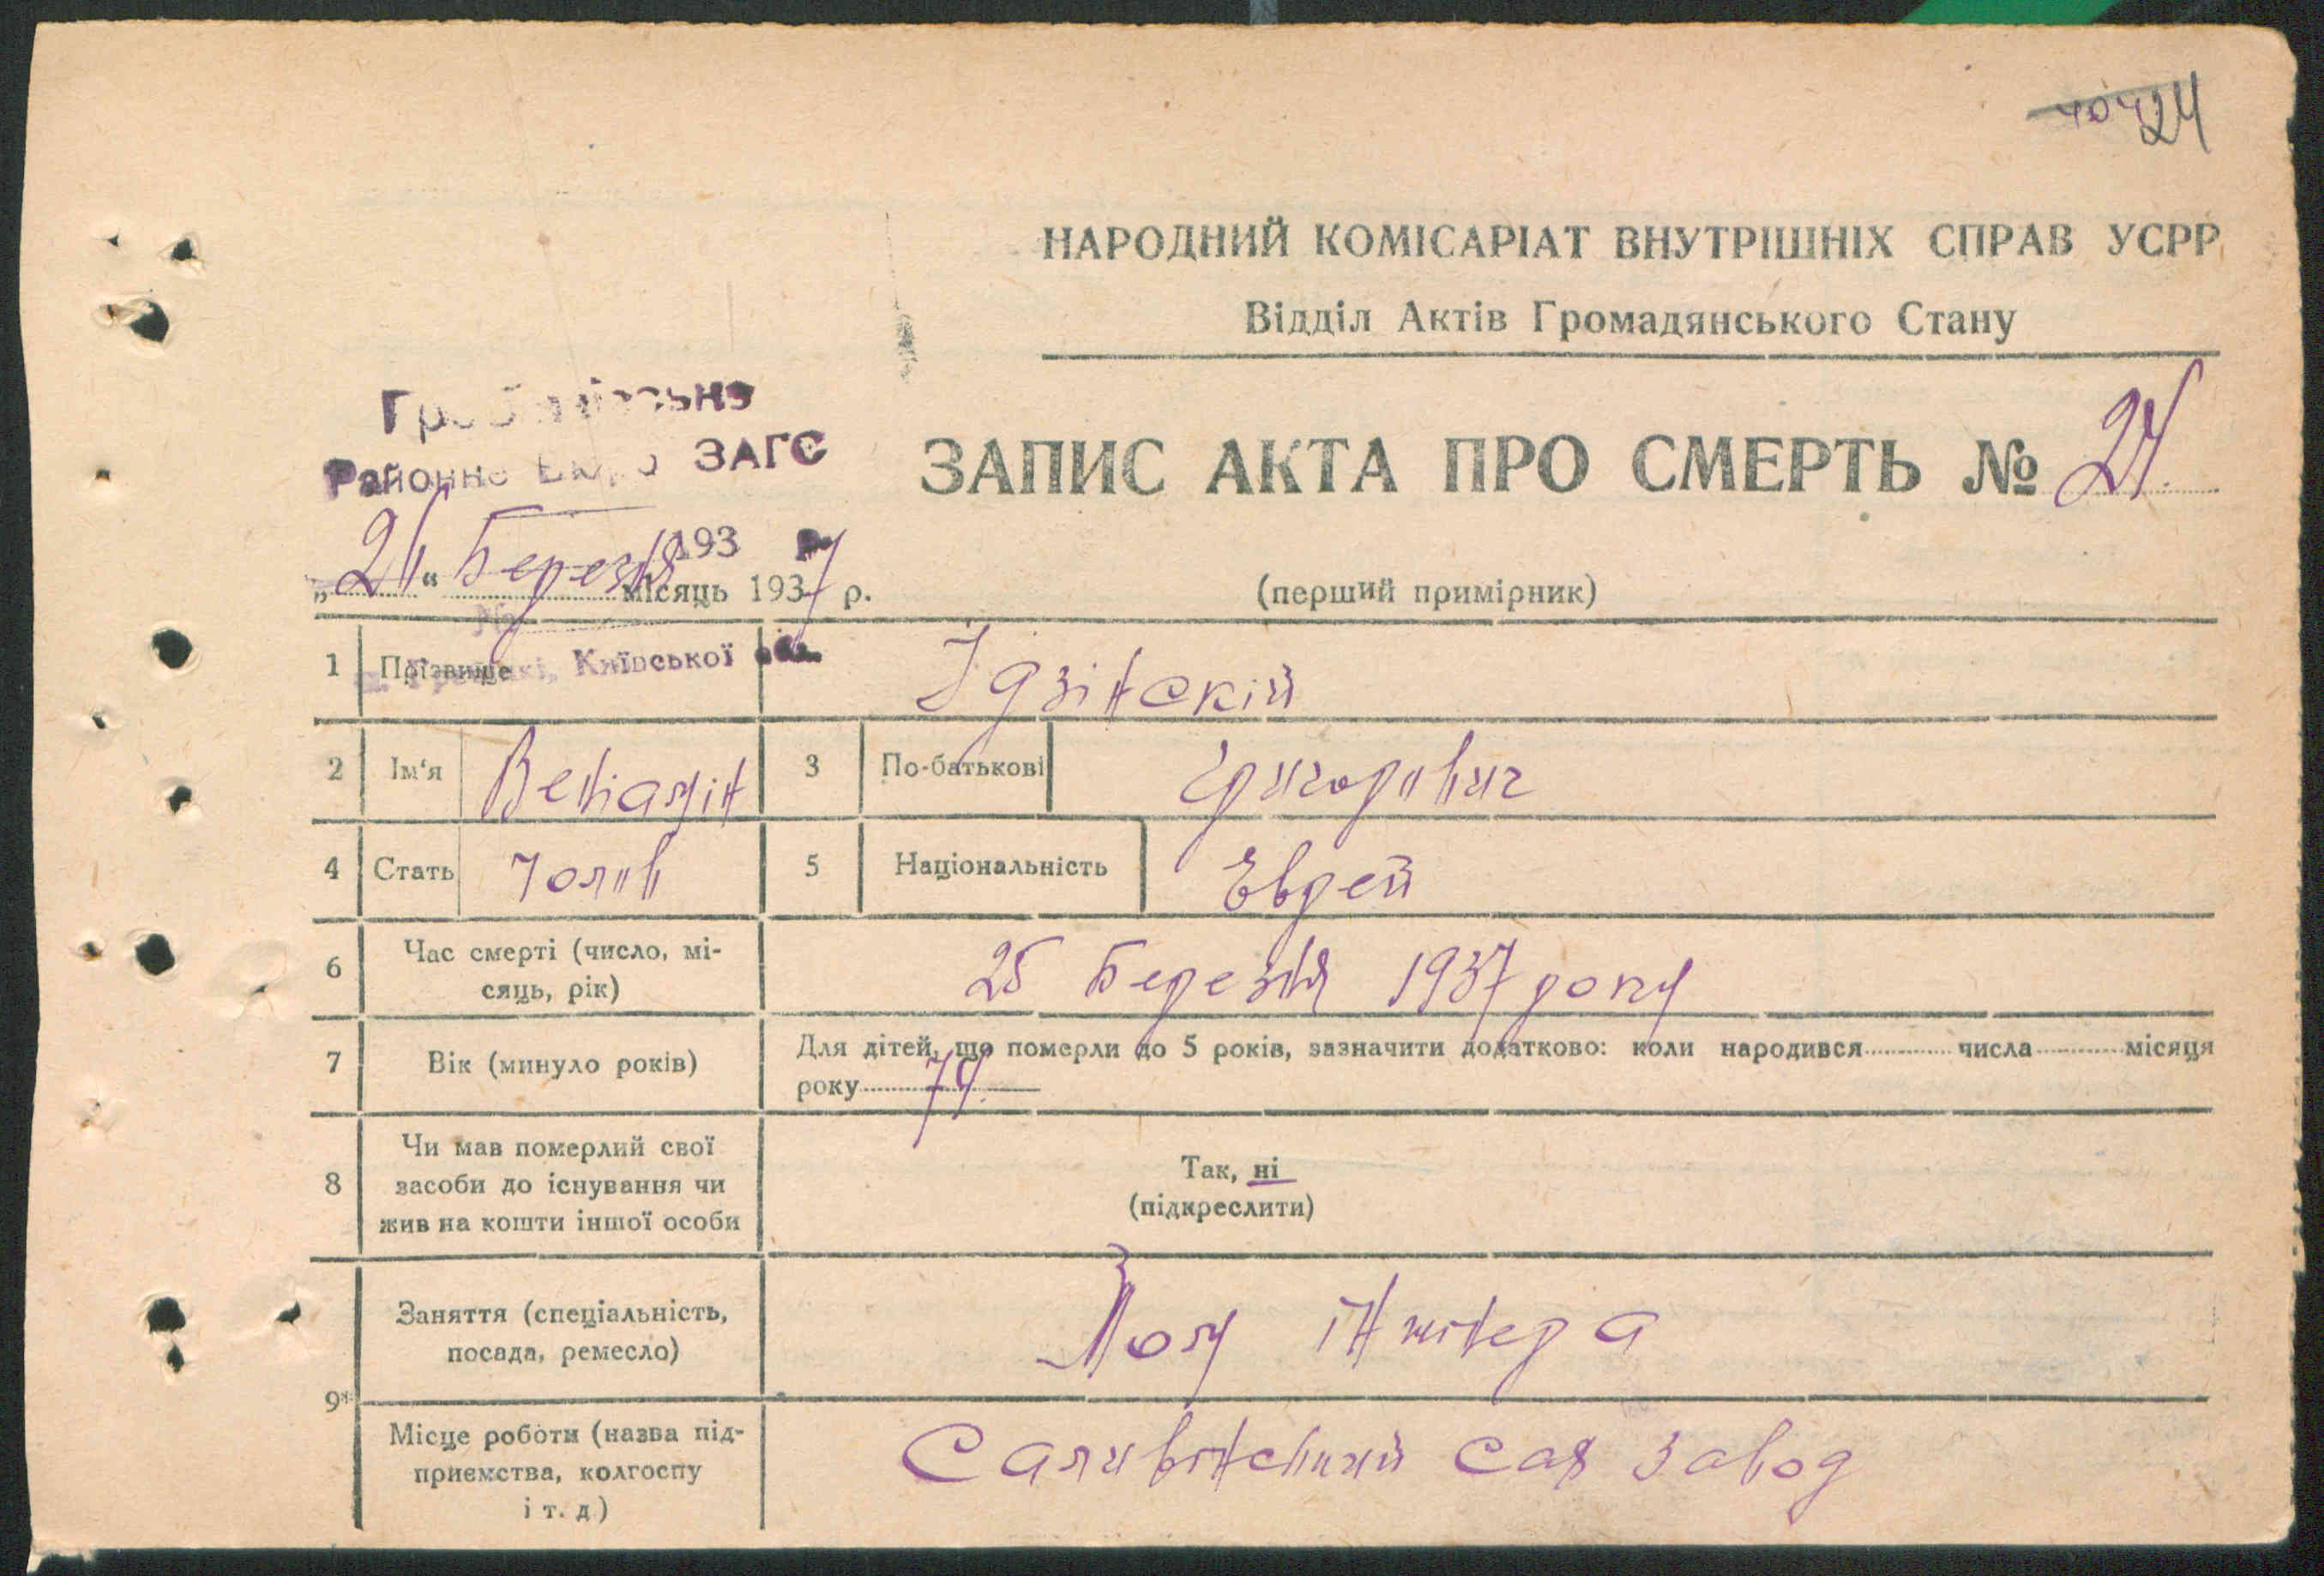 24
НАРОДНИЙ КОМІСАРІАТ ВНУТРІШНІХ СПРАВ УСРР
Відділ Актів Громадянського Стану
Районне Бюро ЗАГС
ЗАПИС АКТА ПРО СМЕРТЬ №
193 р.
„ “ Березня місяць 1937 р.
(перший примірник)
№
Київської обл.
1 Прізвище Ідзінскій
2 Ім'я Веніамін 3 По-батькові Григорович
4 Стать Чолов 5 Національність Еврей
6 Час смерті (число, мі-
сяць, рік)
25 Березня 1937 року
7 Вік (минуло років)
Для дітей, що померли до 5 років, зазначити додатково: коли народився числа місяця
року
8 Чи мав померлий свої
засоби до існування чи
жив на кошти іншої особи
Так, ні
(підкреслити)
9*
Заняття (спеціальність,
посада, ремесло)
Пом інжінера
Місце роботи (назва під-
приємства, колгоспу
і т. д)
Саливінський Сах завод